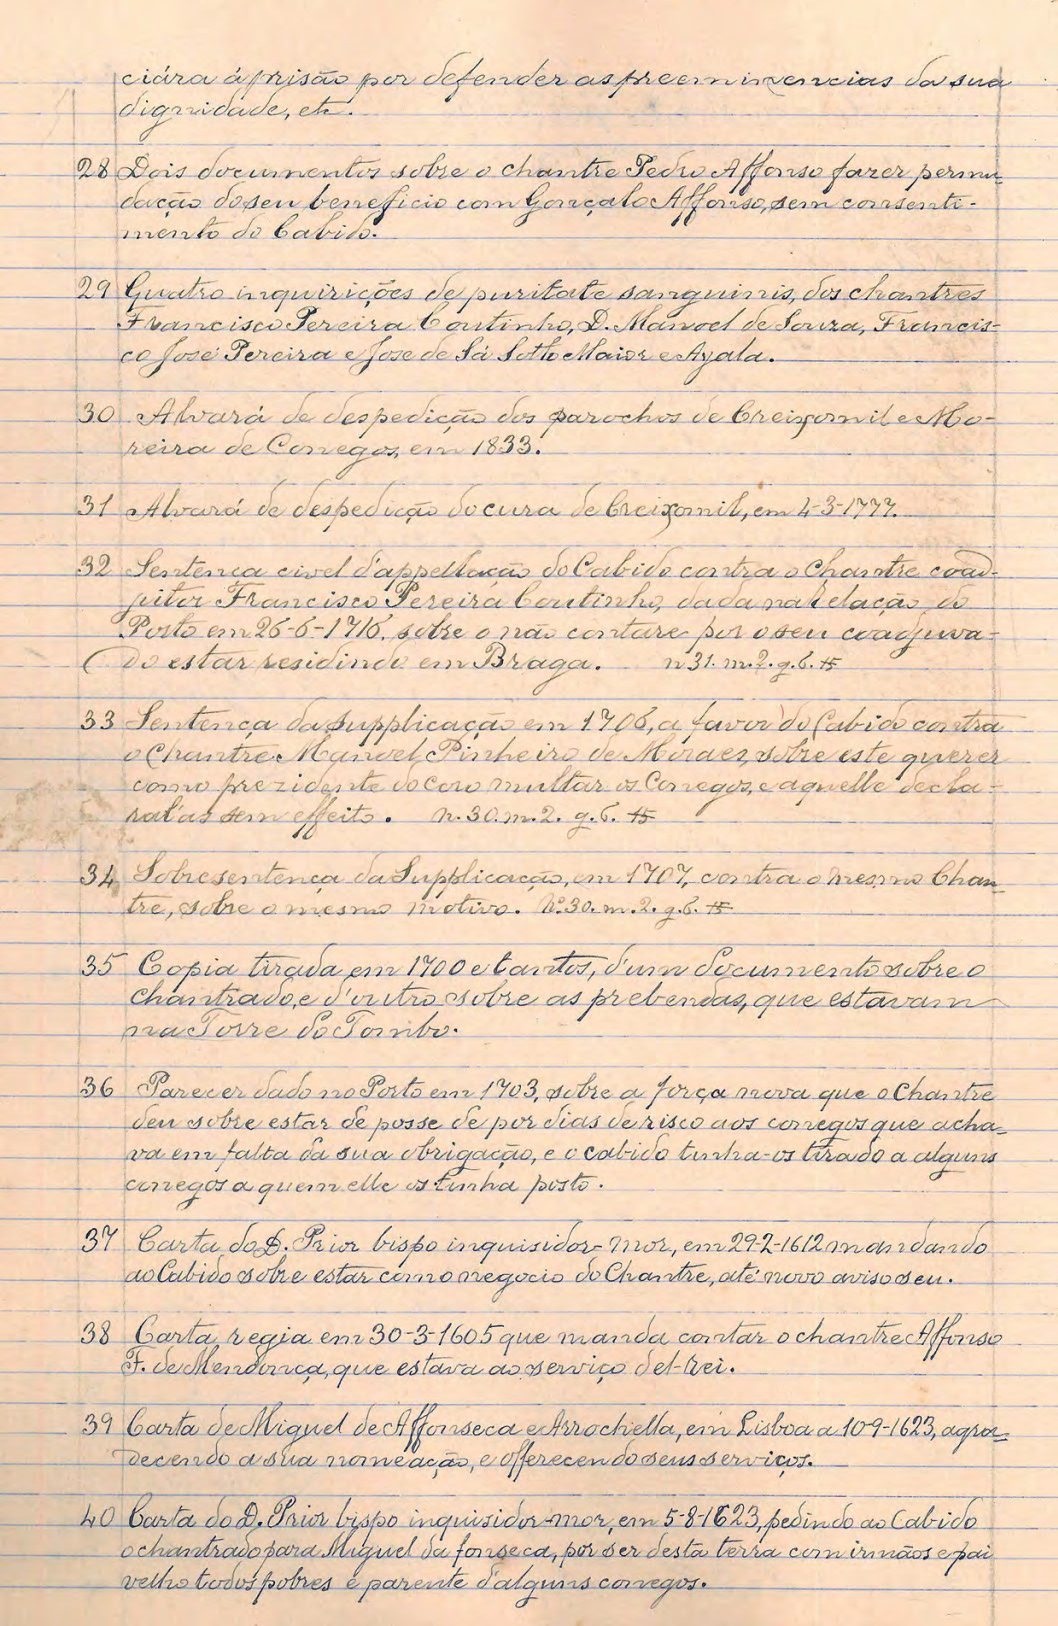 ciára á prisão por defender as preeminencias da sua
dignidade, etc.
28 Dois documentos sobre o chantre Pedro Affonso fazer permu-
dação do seu beneficio com Gonçalo Affonso, sem consenti-
mento do Cabido.
29 Quatro inquirições de puritate sanguinis, dos chantres
Francisco Pereira Coutinho, D. Manoel de Souza, Francis-
co José Pereira e José de Sá Sotto Maior e Ayala.
30 Alvará de despedição dos parochos de Creixomil e Mo-
reira de Conegos, em 1833.
31 Alvará de despedição do cura de Creixomil, em 4-3-1777.
32 Sentença civel d'appellação do Cabido contra o Chantre coad-
jutor Francisco Pereira Coutinho, dada na Relação do
Porto em 26-6-1716, sobre o não contare por o seu coadjuva-
do estar residindo em Braga. n 31. m. 2. g. 6. #
33 Sentença da Supplicação em 1706, a favor do Cabido contra
o Chantre Manoel Pinheiro de Moraez, sobre este querer
como prezidente do coro multar os Conegos, e aquelle decla-
ral'as sem effeito. n. 30. m. 2. g. 6. #
34 Sobresentença da Supplicação, em 1707, contra o mesmo Chan-
tre, sobre o mesmo motivo. Nº 30. m. 2. g. 6. #
35 Copia tirada em 1700 e tantos, d'um documento sobre o
chantrado, e d'outro sobre as prebendas, que estavam
na Torre do Tombo.
36 Parecer dado no Porto em 1703, sobre a força nova que o Chantre
deu sobre estar de posse de por dias de risco aos conegos que acha-
va em falta da sua obrigação, e o cabido tinha-os tirado a alguns
conegos a quem elle os tinha posto.
37 Carta do D. Prior bispo inquisidor-mor, em 29-2-1612 mandando
ao Cabido sobre estar como negocio do Chantre, até novo aviso seu.
38 Carta regia em 30-3-1605 que manda contar o chantre Affonso
F. de Mendonça, que estava ao serviço del-rei.
39 Carta de Miguel de Affonseca e Arrochella, em Lisboa a 10-9-1623, agra-
decendo a sua nomeação, e offerecendo seus serviços.
40 Carta do D. Prior bispo inquisidor-mor, em 5-8-1623, pedindo ao Cabido
o chantrado para Miguel da fonseca, por ser desta terra com irmãos e pai
velho todos pobres e parente d'alguns conegos.